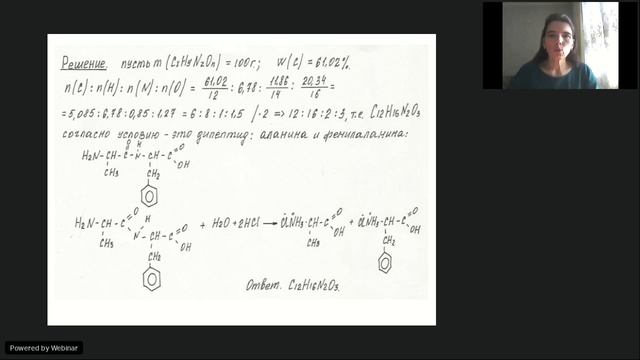 Решение. пусть m (CxHyNzOn) = 100г.; W(C) = 61,02%.
n(C) : n(H) : n(N) : n(O) = 61,02/12 : 6,78 : 11,86/14 : 20,34/16 =
= 5,085 : 6,78 : 0,85 : 1,27 = 6 : 8 : 1 : 1,5 /·2 => 12 : 16 : 2 : 3, т.е. C12H16N2O3
согласно условию - это дипептид: аланина и фенилаланина:
H2N-CH-C-N-CH-C
O H O OH
CH3 CH2
H2N-CH-C O H + H2O + 2HCl → ClNH3-CH-C O OH + ClNH3-CH-C O OH
CH3 N-CH-C O OH CH3 CH2
CH2
Ответ. C12H16N2O3.
Powered by Webinar